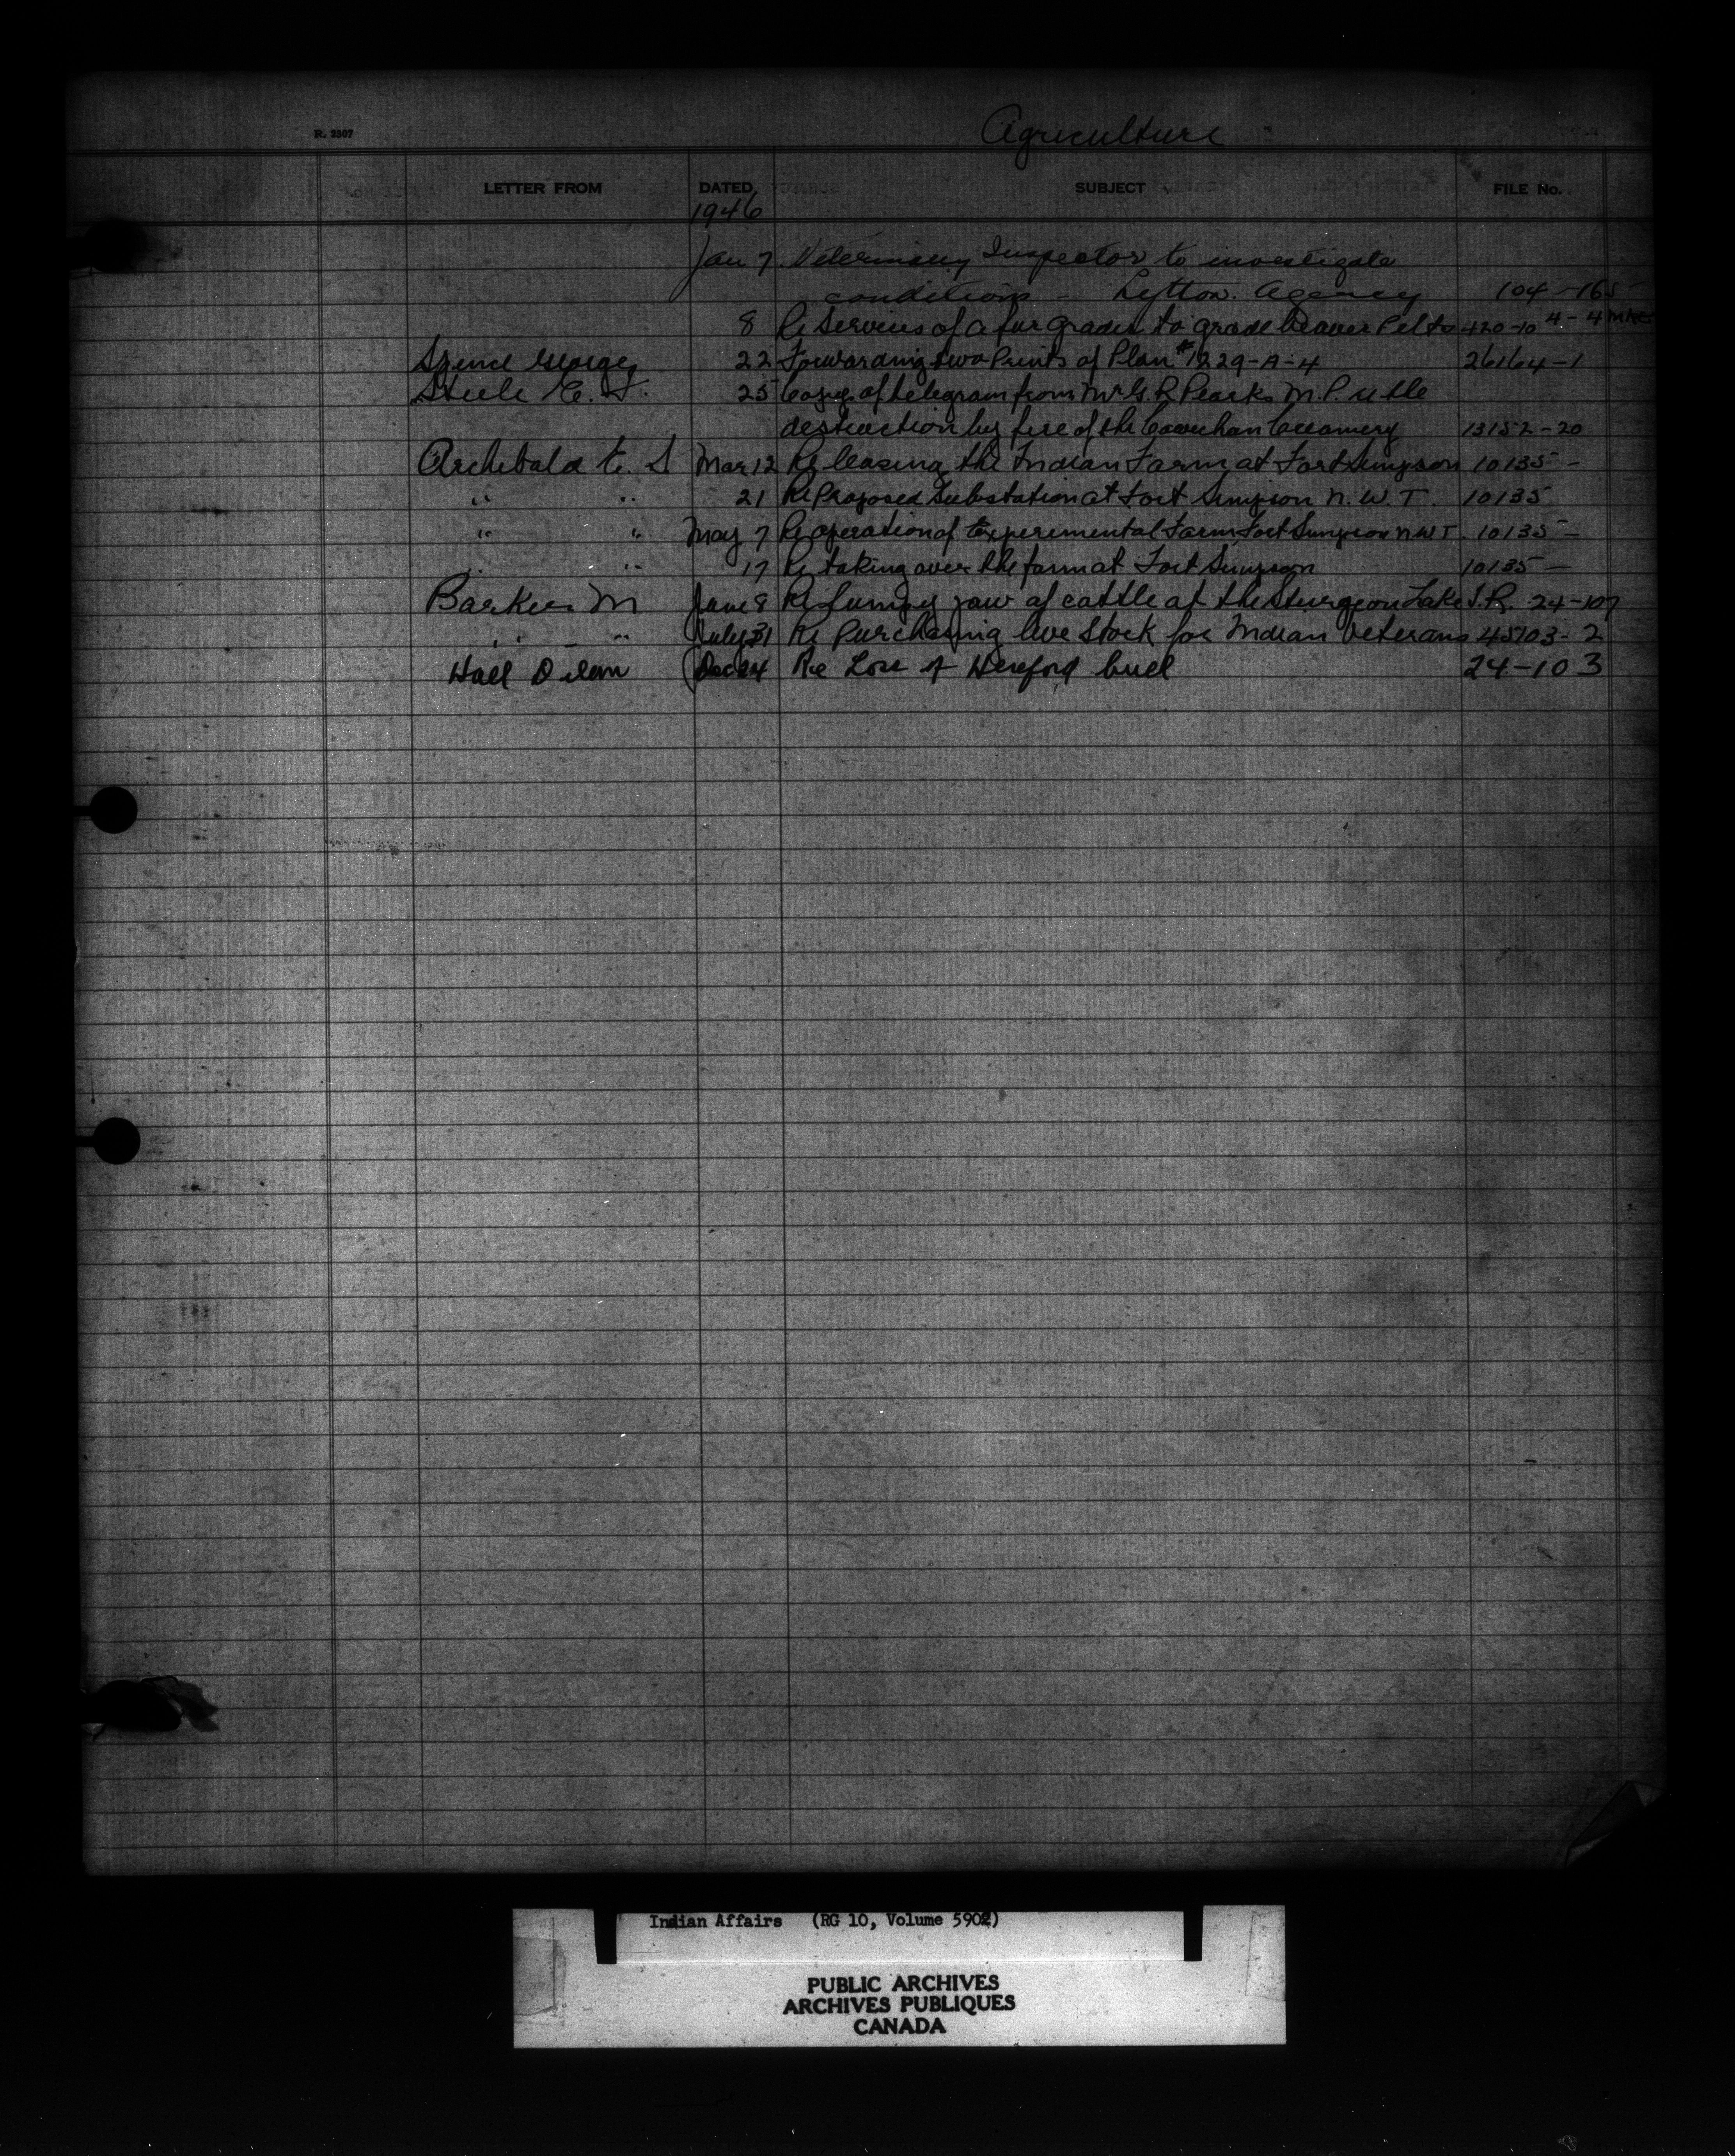 Agriculture
R. 2307
LETTER FROM DATED SUBJECT FILE No.
1946
Jan 7 Veterinary Inspector to investigate
conditions - Lytton Agency 104-165
8 Re Services of a fur grader to grade beaver Pelts 420-10 4-4
Spence George 22 Forwarding two Prints of Plan #1229-A-4 26164-1
Steele C. F. 25 Copy of telegram from Mr G. R. Pearkes M.P. re the
destruction by fire of the Cowichan Creamery 13152-20
Archibald E. S Mar 12 Re leasing the Indian Farm at Fort Simpson 10135-
" " 21 Re Proposed Substation at Fort Simpson N.W.T. 10135
" " May 7 Re operation of Experimental Farm Fort Simpson N.W.T. 10135-
" " 17 Re taking over the farm at Fort Simpson 10135-
Barker M June 8 Re lumpy jaw of cattle at the Sturgeon Lake I.R. 24-107
" " July 31 Re Purchasing live Stock for Indian Veterans 45103-2
Hall Dec 24 Re Loss of Hereford bull 24-103
Indian Affairs (RG 10, Volume 5902)
PUBLIC ARCHIVES
ARCHIVES PUBLIQUES
CANADA